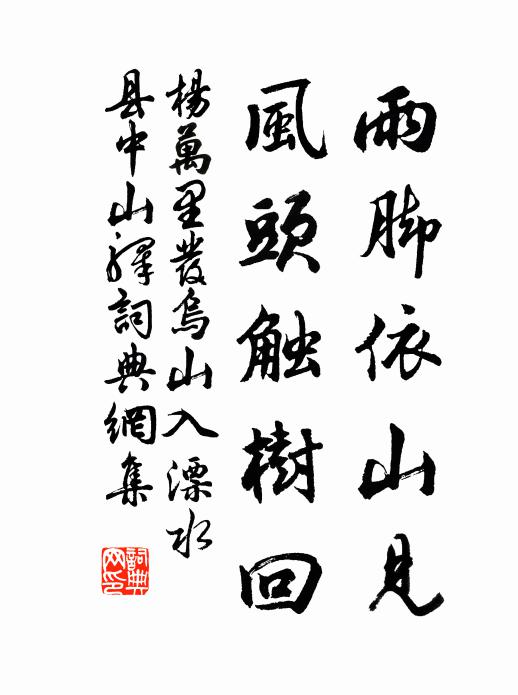 雨脚依山見
風頭触樹回
楊萬里發烏山入溧水
县中山驛詞典網集
詞典网印